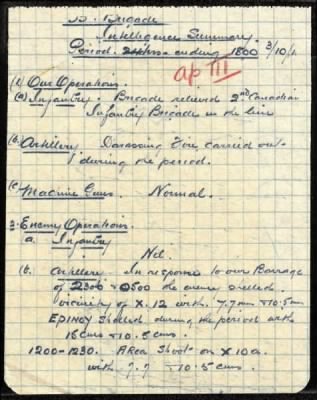 B. Brigade
Intelligence Summary.
Period 24hrs ending 1800 3/10/1
ap III
(1) Our Operations.
(a) Infantry. Brigade relieved 2nd Canadian
Infantry Brigade in the line
(b. Artillery Harassing Fire carried out
during the period.
(c. Machine Guns. Normal.
2. Enemy Operations.
a. Infantry
Nil.
(b. Artillery. In response to our Barrage
of 2300 - 0500 the enemy shelled
vicinity of X.12 with 7.7 mm + 10.5 cm
EPINOY Shelled during the period with
15 cms + 10.5 cms.
1200-1230. Area Shoot on X10a
with 7.7 + 10.5 cms.